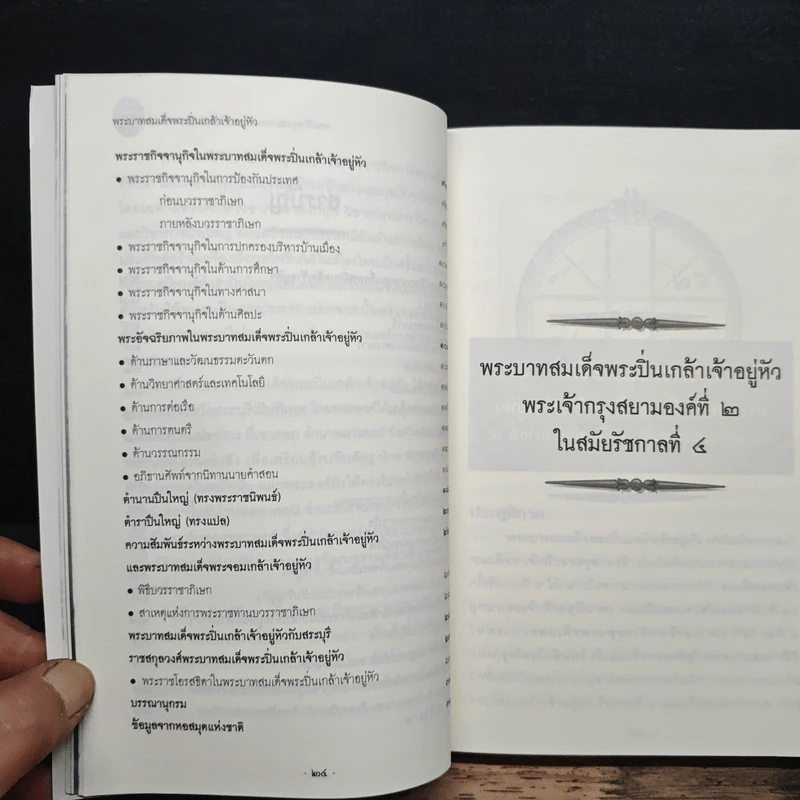 พระบาทสมเด็จพระปิ่นเกล้าเจ้าอยู่หัว
พระราชกิจจานุกิจในพระบาทสมเด็จพระปิ่นเกล้าเจ้าอยู่หัว
• พระราชกิจจานุกิจในการป้องกันประเทศ
ก่อนบวรราชาภิเษก
ภายหลังบวรราชาภิเษก
• พระราชกิจจานุกิจในการปกครองบริหารบ้านเมือง
• พระราชกิจจานุกิจในด้านการศึกษา
• พระราชกิจจานุกิจในทางศาสนา
• พระราชกิจจานุกิจในด้านศิลปะ
พระอัจฉริยภาพในพระบาทสมเด็จพระปิ่นเกล้าเจ้าอยู่หัว
• ด้านภาษาและวัฒนธรรมตะวันตก
• ด้านวิทยาศาสตร์และเทคโนโลยี
• ด้านการต่อเรือ
• ด้านการดนตรี
• ด้านวรรณกรรม
• อภิธานศัพท์จากนิทานนายคำสอน
ตำนานปืนใหญ่ (ทรงพระราชนิพนธ์)
ตำราปืนใหญ่ (ทรงแปล)
ความสัมพันธ์ระหว่างพระบาทสมเด็จพระปิ่นเกล้าเจ้าอยู่หัว
และพระบาทสมเด็จพระจอมเกล้าเจ้าอยู่หัว
• พิธีบวรราชาภิเษก
• สาเหตุแห่งการพระราชทานบวรราชาภิเษก
พระบาทสมเด็จพระปิ่นเกล้าเจ้าอยู่หัวกับสระบุรี
ราชสกุลวงศ์พระบาทสมเด็จพระปิ่นเกล้าเจ้าอยู่หัว
• พระราชโอรสธิดาในพระบาทสมเด็จพระปิ่นเกล้าเจ้าอยู่หัว
บรรณานุกรม
ข้อมูลจากหอสมุดแห่งชาติ
พระบาทสมเด็จพระปิ่นเกล้าเจ้าอยู่หัว
พระเจ้ากรุงสยามองค์ที่ ๒
ในสมัยรัชกาลที่ ๔